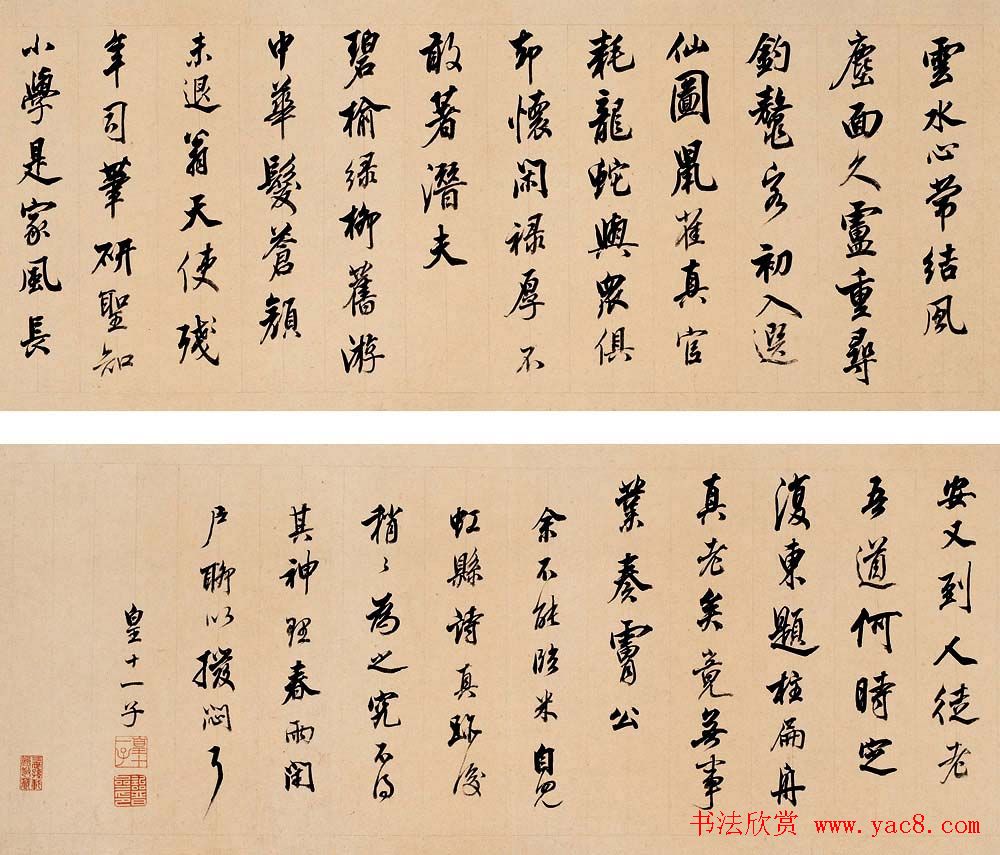 雲水心常結風
塵面久盧重尋
釣鼇客初入選
仙圖鼠雀真官
耗龍蛇與眾俱
却懷閑祿厚不
敢著潛夫
碧榆綠柳舊游
中華髮蒼顏
未退翁天使殘
年司筆研聖知
小學是家風長
安又到人徒老
吾道何時定
復東題柱扁舟
真老矣竟無事
業奏膚公
余不能臨米自見
虹縣詩真跡後
稍〻為之究不得
其神理春雨閉
戶聊以撥悶耳
皇十一子
书法欣赏 www.yac8.com